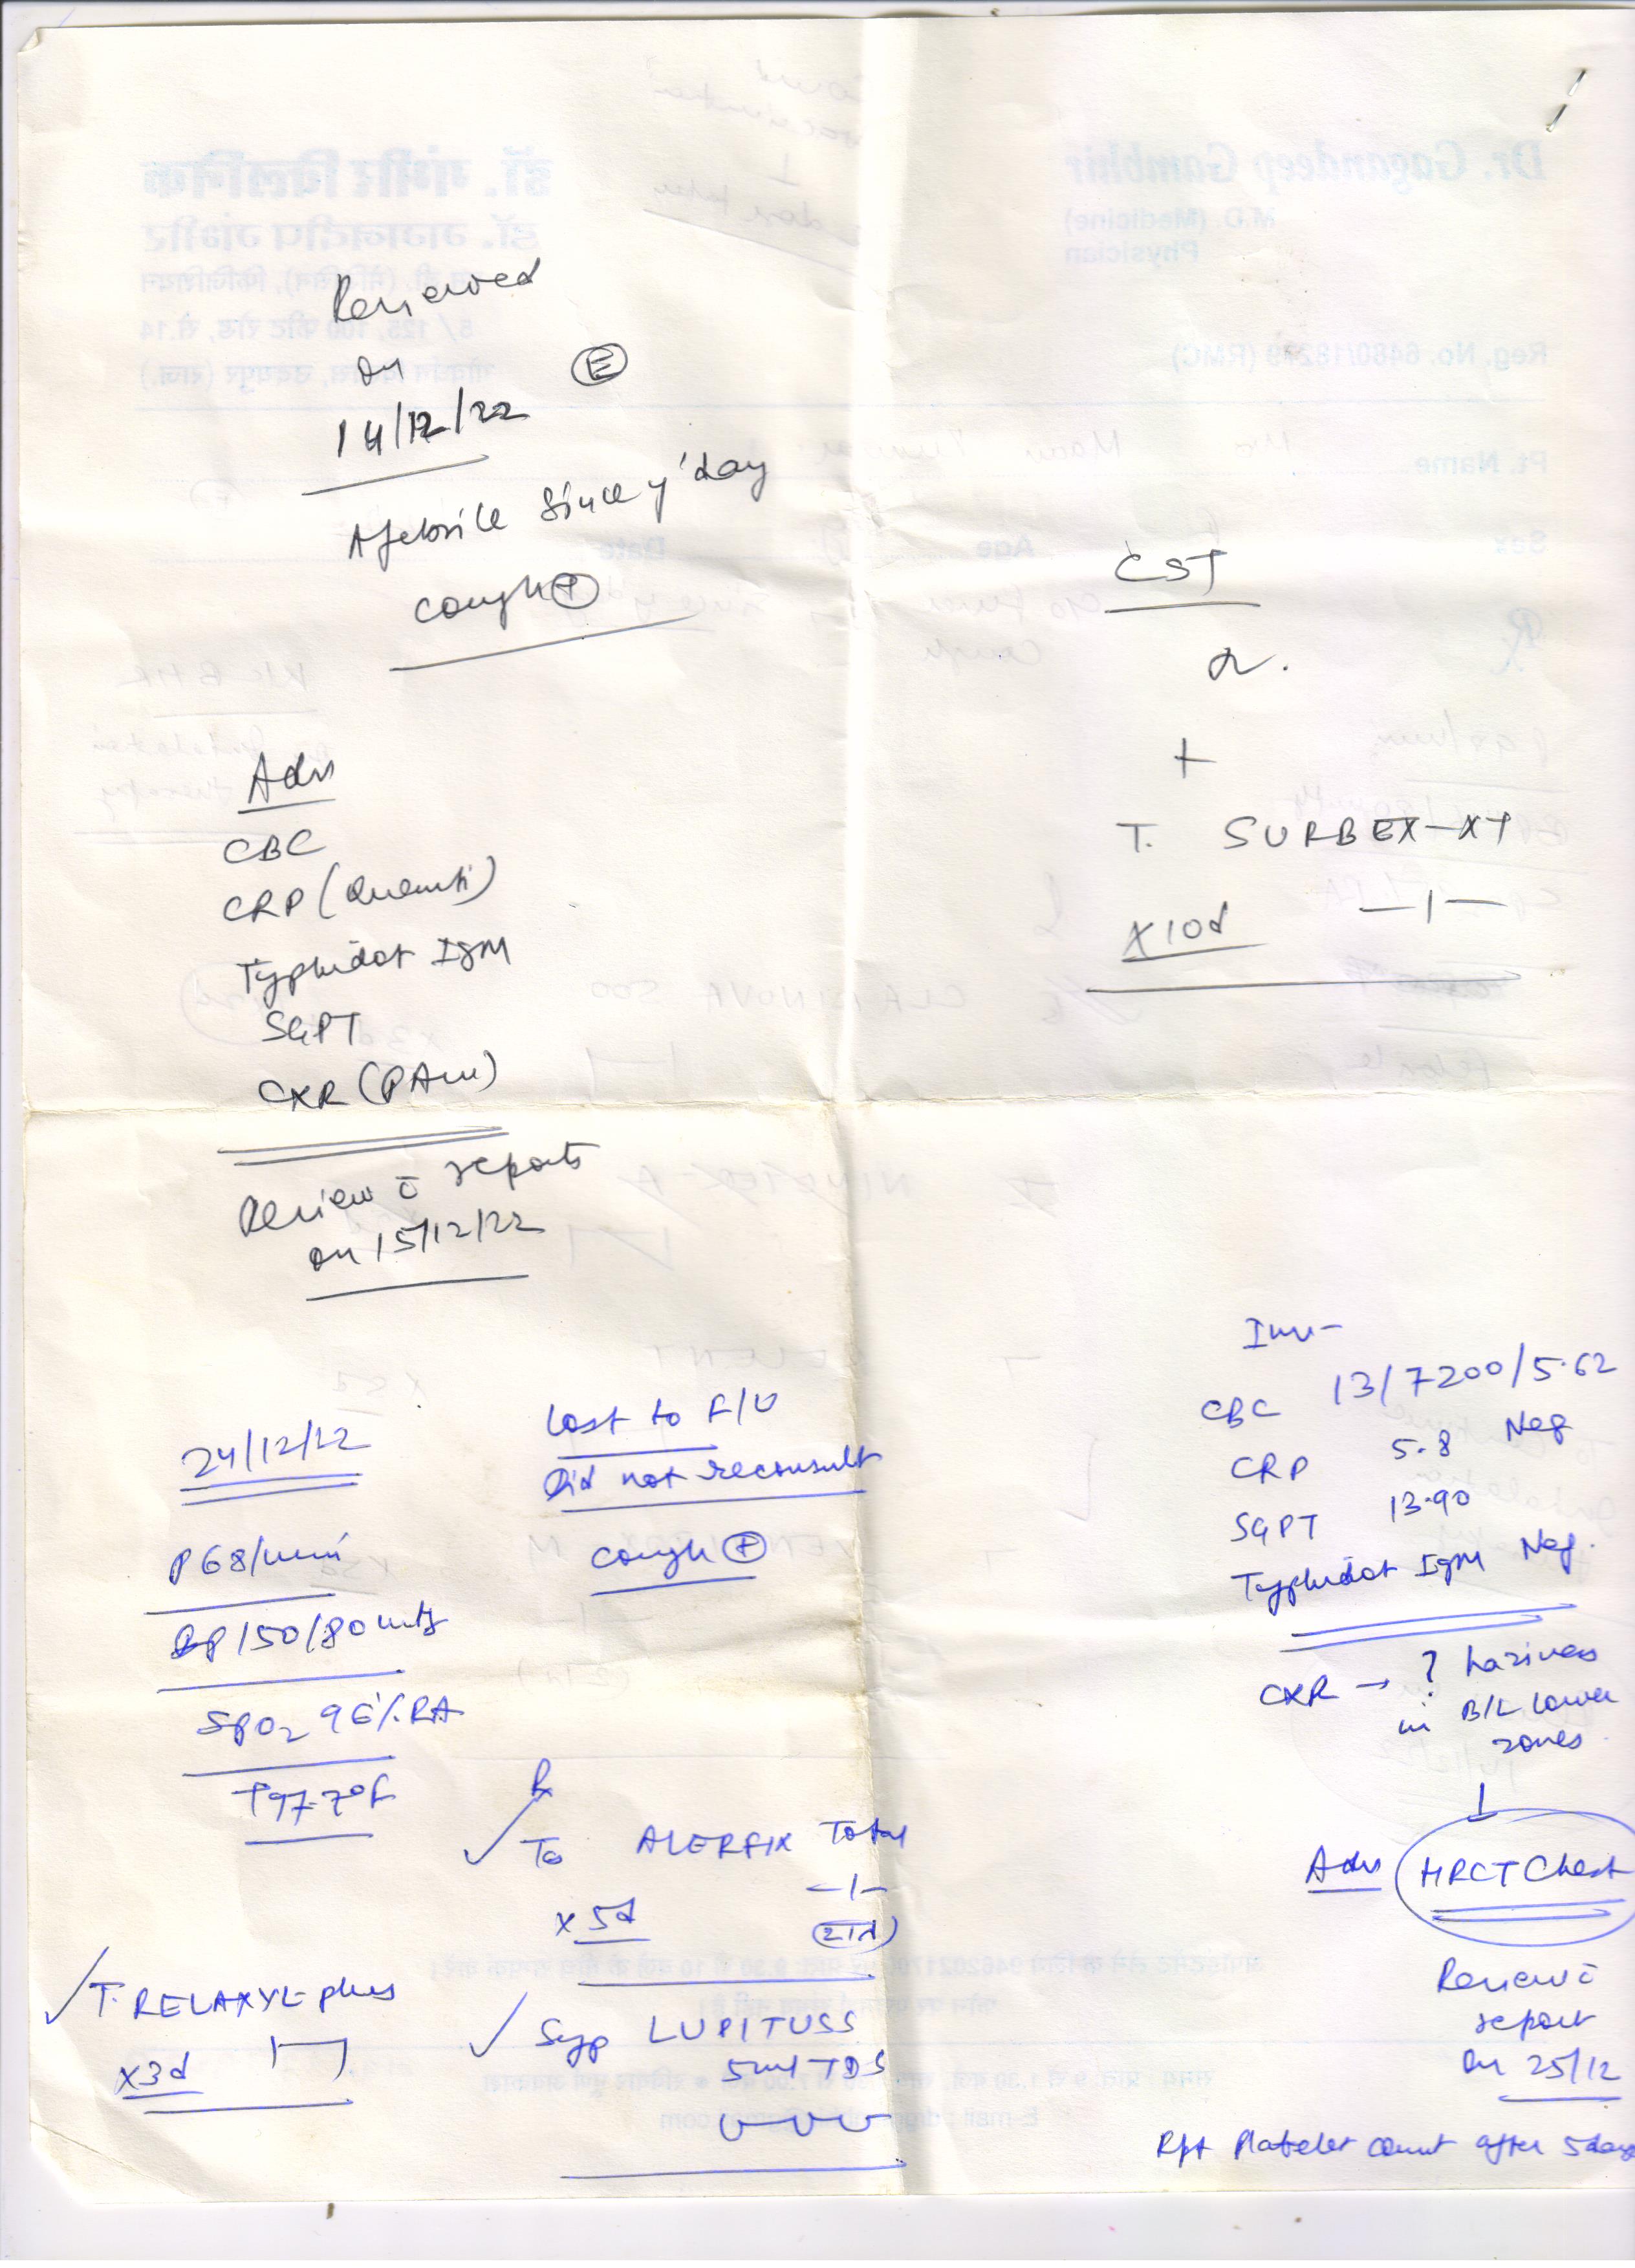 Reviewed
on
14/12/22
E
Afebrile since y'day
cough +
CST
+
T. SURBEX-XT
—1—
x10d
Adv
CBC
CRP (Quanti)
Typhidot IgM
SGPT
CXR (PAvw)
Review c̄ reports
on 15/12/22
24/12/22
Lost to F/U
Did not reconsult
cough +
P 68/min
BP 150/80
SpO2 96% RA
T 97.7°F
Inv-
CBC 13/7200/5.62
CRP 5.8 Neg
SGPT 13.90
Typhidot IgM Neg.
CXR → ? haziness
in B/L lower
zones
↓
Adv HRCT Chest
Review c̄
report
on 25/12
Rpt Platelet count after 5 days
Rx
ALERFIX Total
—1—
x 5d
T. RELAXYL plus
x3d
Syp LUPITUSS
5ml TDS